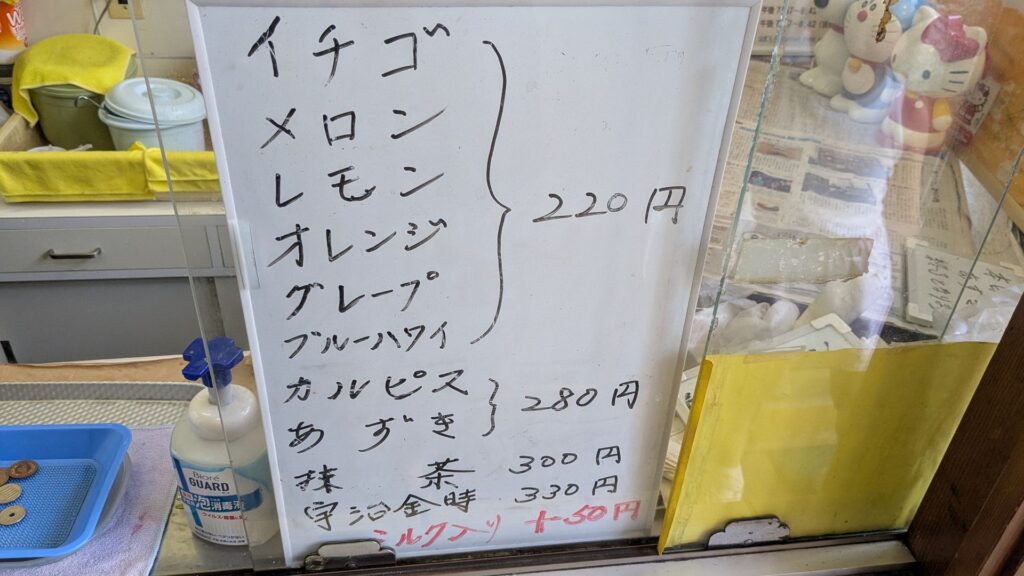 イチゴ
メロン
レモン
オレンジ
グレープ
ブルーハワイ
220円
カルピス
あずき
280円
抹茶 300円
宇治金時 330円
ミルク入り +50円
Bioré
GUARD
消毒液